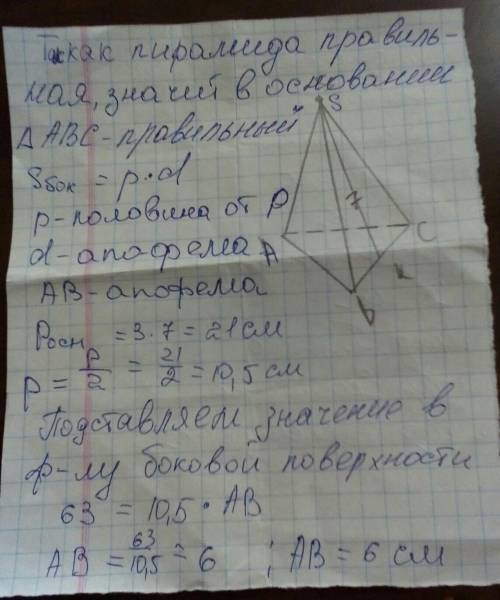 Так как пирамида правиль-
ная, значит в основании
△ABC - правильный
Sбок = p·d
p - половина от P
d - апофема
AB - апофема
S
7
A
C
b
к
Pосн = 3·7 = 21 см
p = P/2 = 21/2 = 10,5 см
Подставляем значение в
ф-лу боковой поверхности
63 = 10,5 · AB
AB = 63/10,5 = 6 ; AB = 6 см